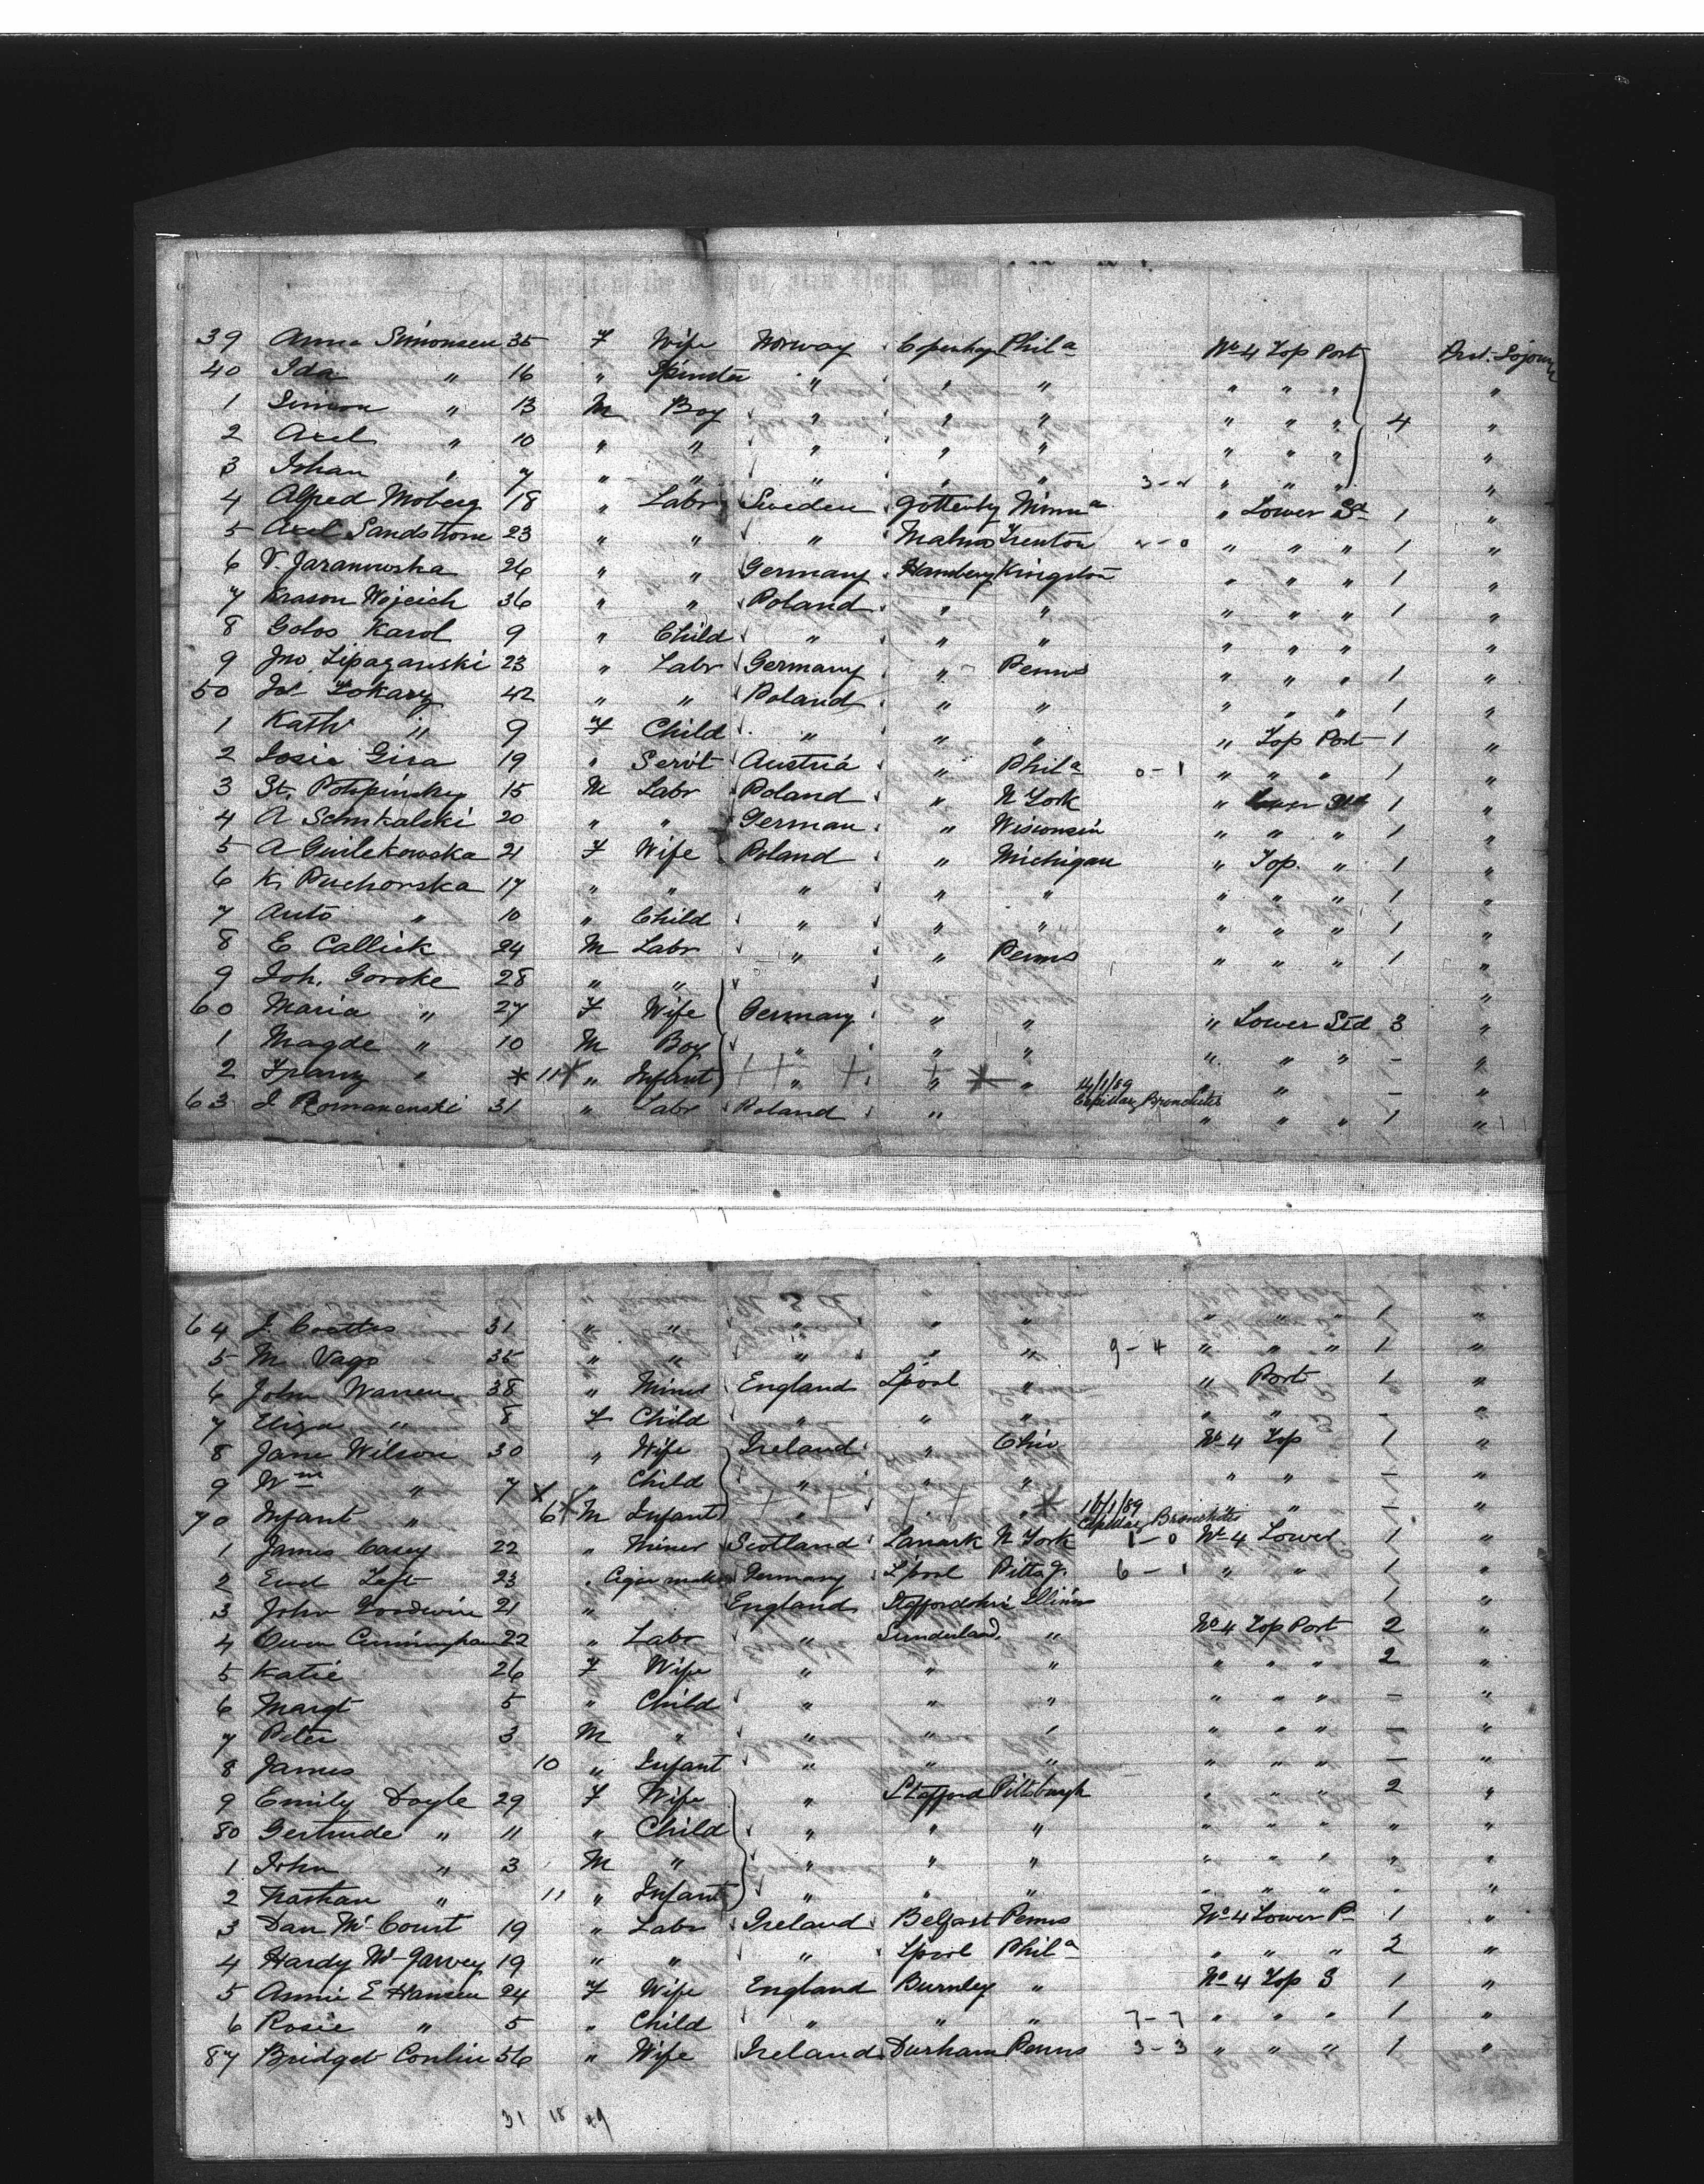 39 Anna Simonsen 35 F Wife Norway Copenhag Phila No 4 Top Port Prot. Sojourn
40 Ida " 16 " Spinster " " " " " " "
1 Simon " 13 M Boy " " " " " " 4 "
2 Axel " 10 " " " " " " " " "
3 Johan " 7 " " " " " " " " "
4 Alfred Moberg 18 " Labr Sweden Minna " Lower Sd 1 "
5 Axel Sandstrom 23 " " " Trenton " " " 1 "
6 V. Jaranowska 26 " " Germany Hamburg Kingston " " " 1 "
7 Krason Wojcich 36 " " Poland " " " " " 1 "
8 Golos Karol 9 " Child " " " " " " "
9 Jno 23 " Labr Germany " Penns " " " 1 "
50 42 " " Poland " " " " " 1 "
1 Kath " 9 F Child " " " " Top Port 1 "
2 Gira 19 " Servt Austria " Phila 0-1 " " " 1 "
3 St. 15 M Labr Poland " N York " 1 "
4 A 20 " " German " Wisconsin " " " 1 "
5 A 21 F Wife Poland " Michigan " Top " 1 "
6 K. Puchorska 17 " " " " " " " " 1 "
7 Anto " 10 " Child " " " " " " 1 "
8 E Callick 24 M Labr " " Penns " " " 1 "
9 Joh. Goroke 28 " " "
60 Maria " 27 F Wife Germany " " " Lower Std 3 "
1 Magde " 10 M Boy " " " " " " - "
2 Franz " 11 " Infant " " " 14/1/89 Capillary Bronchitis " " - "
63 J Romanenski 31 " Labr Poland " " " " 1 "
64 J. 31 " " " " " " " " 1 "
5 M Vago 35 " " " " " 9-4 " " " 1 "
6 John Warren 38 " Miner England L'pool " " Port 1 "
7 Eliza " 8 F Child " " " " " - "
8 Jane Wilson 30 " Wife Ireland " Ohio No 4 Top 1 "
9 Wm " 7 " Child " " " " " - "
70 Infant " 6 M Infant " " " 10/1/89 Capillary Bronchitis " - "
1 James Casey 22 " Miner Scotland Lanark N York 1-0 No 4 Lower 1 "
2 23 " Cigar maker Germany L'pool Pittsg. 6-1 " " 1 "
3 John Goodwin 21 " England Staffordshire Illinois 1 "
4 Owen Cunningham 22 " Labr " Sunderland " No 4 Top Port 2 "
5 Katie 26 F Wife " " " " " " 2 "
6 Margt 5 " Child " " " " " " - "
7 Peter 3 M " " " " " " " - "
8 James 10 " Infant " " " " " " - "
9 Emily Doyle 29 F Wife " Stafford Pittsburgh " " " 2 "
80 Gertrude " 11 " Child " " " " " " " "
1 John " 3 M " " " " " " " " "
2 " 11 " Infant " " " " " " " "
3 Dan McCourt 19 " Labr Ireland Belfast Penns No 4 Lower P 1 "
4 Hardy McGarvey 19 " " " Lpool Phila " " " 2 "
5 Annie E Hansen 24 F Wife England Burnley " No 4 Top S 1 "
6 Rosie " 5 " Child " " " 7-7 " " " 1 "
87 Bridget Conlin 56 " Wife Ireland Durham Penns 3-3 " " " 1 "
31 18 49